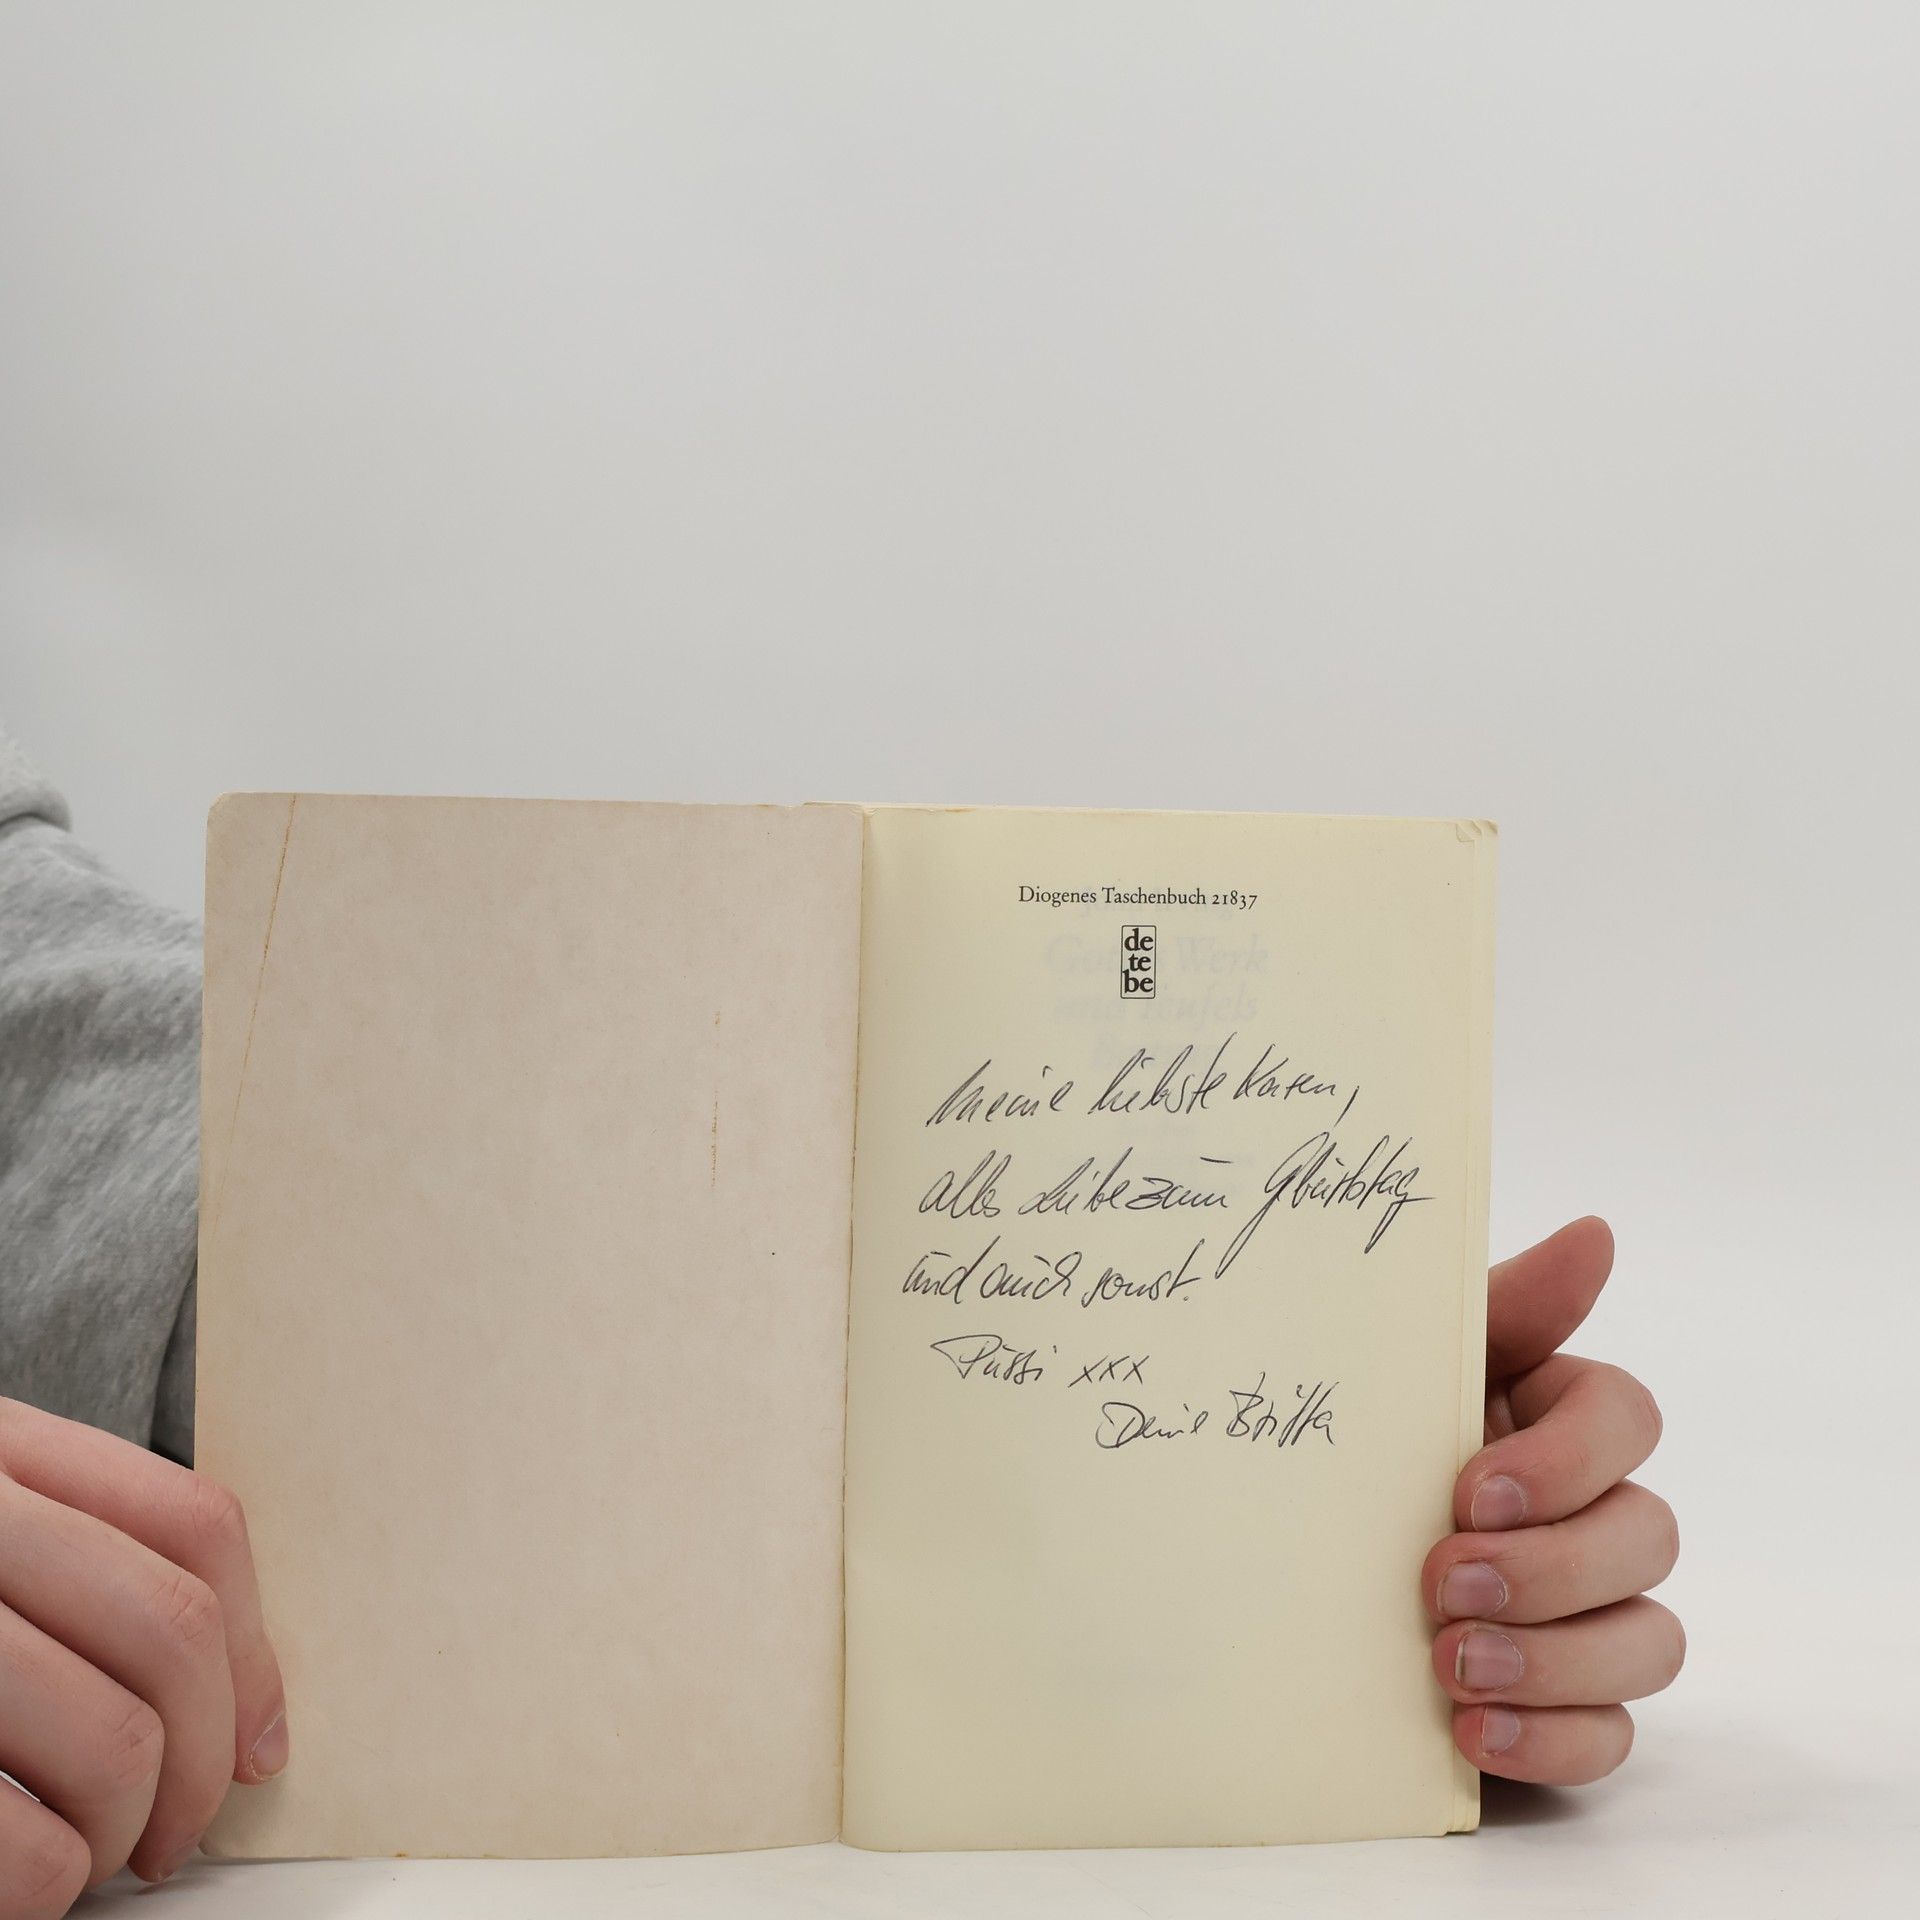 Diogenes Taschenbuch 21837
de
te
be
Gottes Werk
und Teufels
Meine liebste Karen,
alles Liebe zum Geburtstag
und auch sonst.
Bussi xxx
Deine Britta